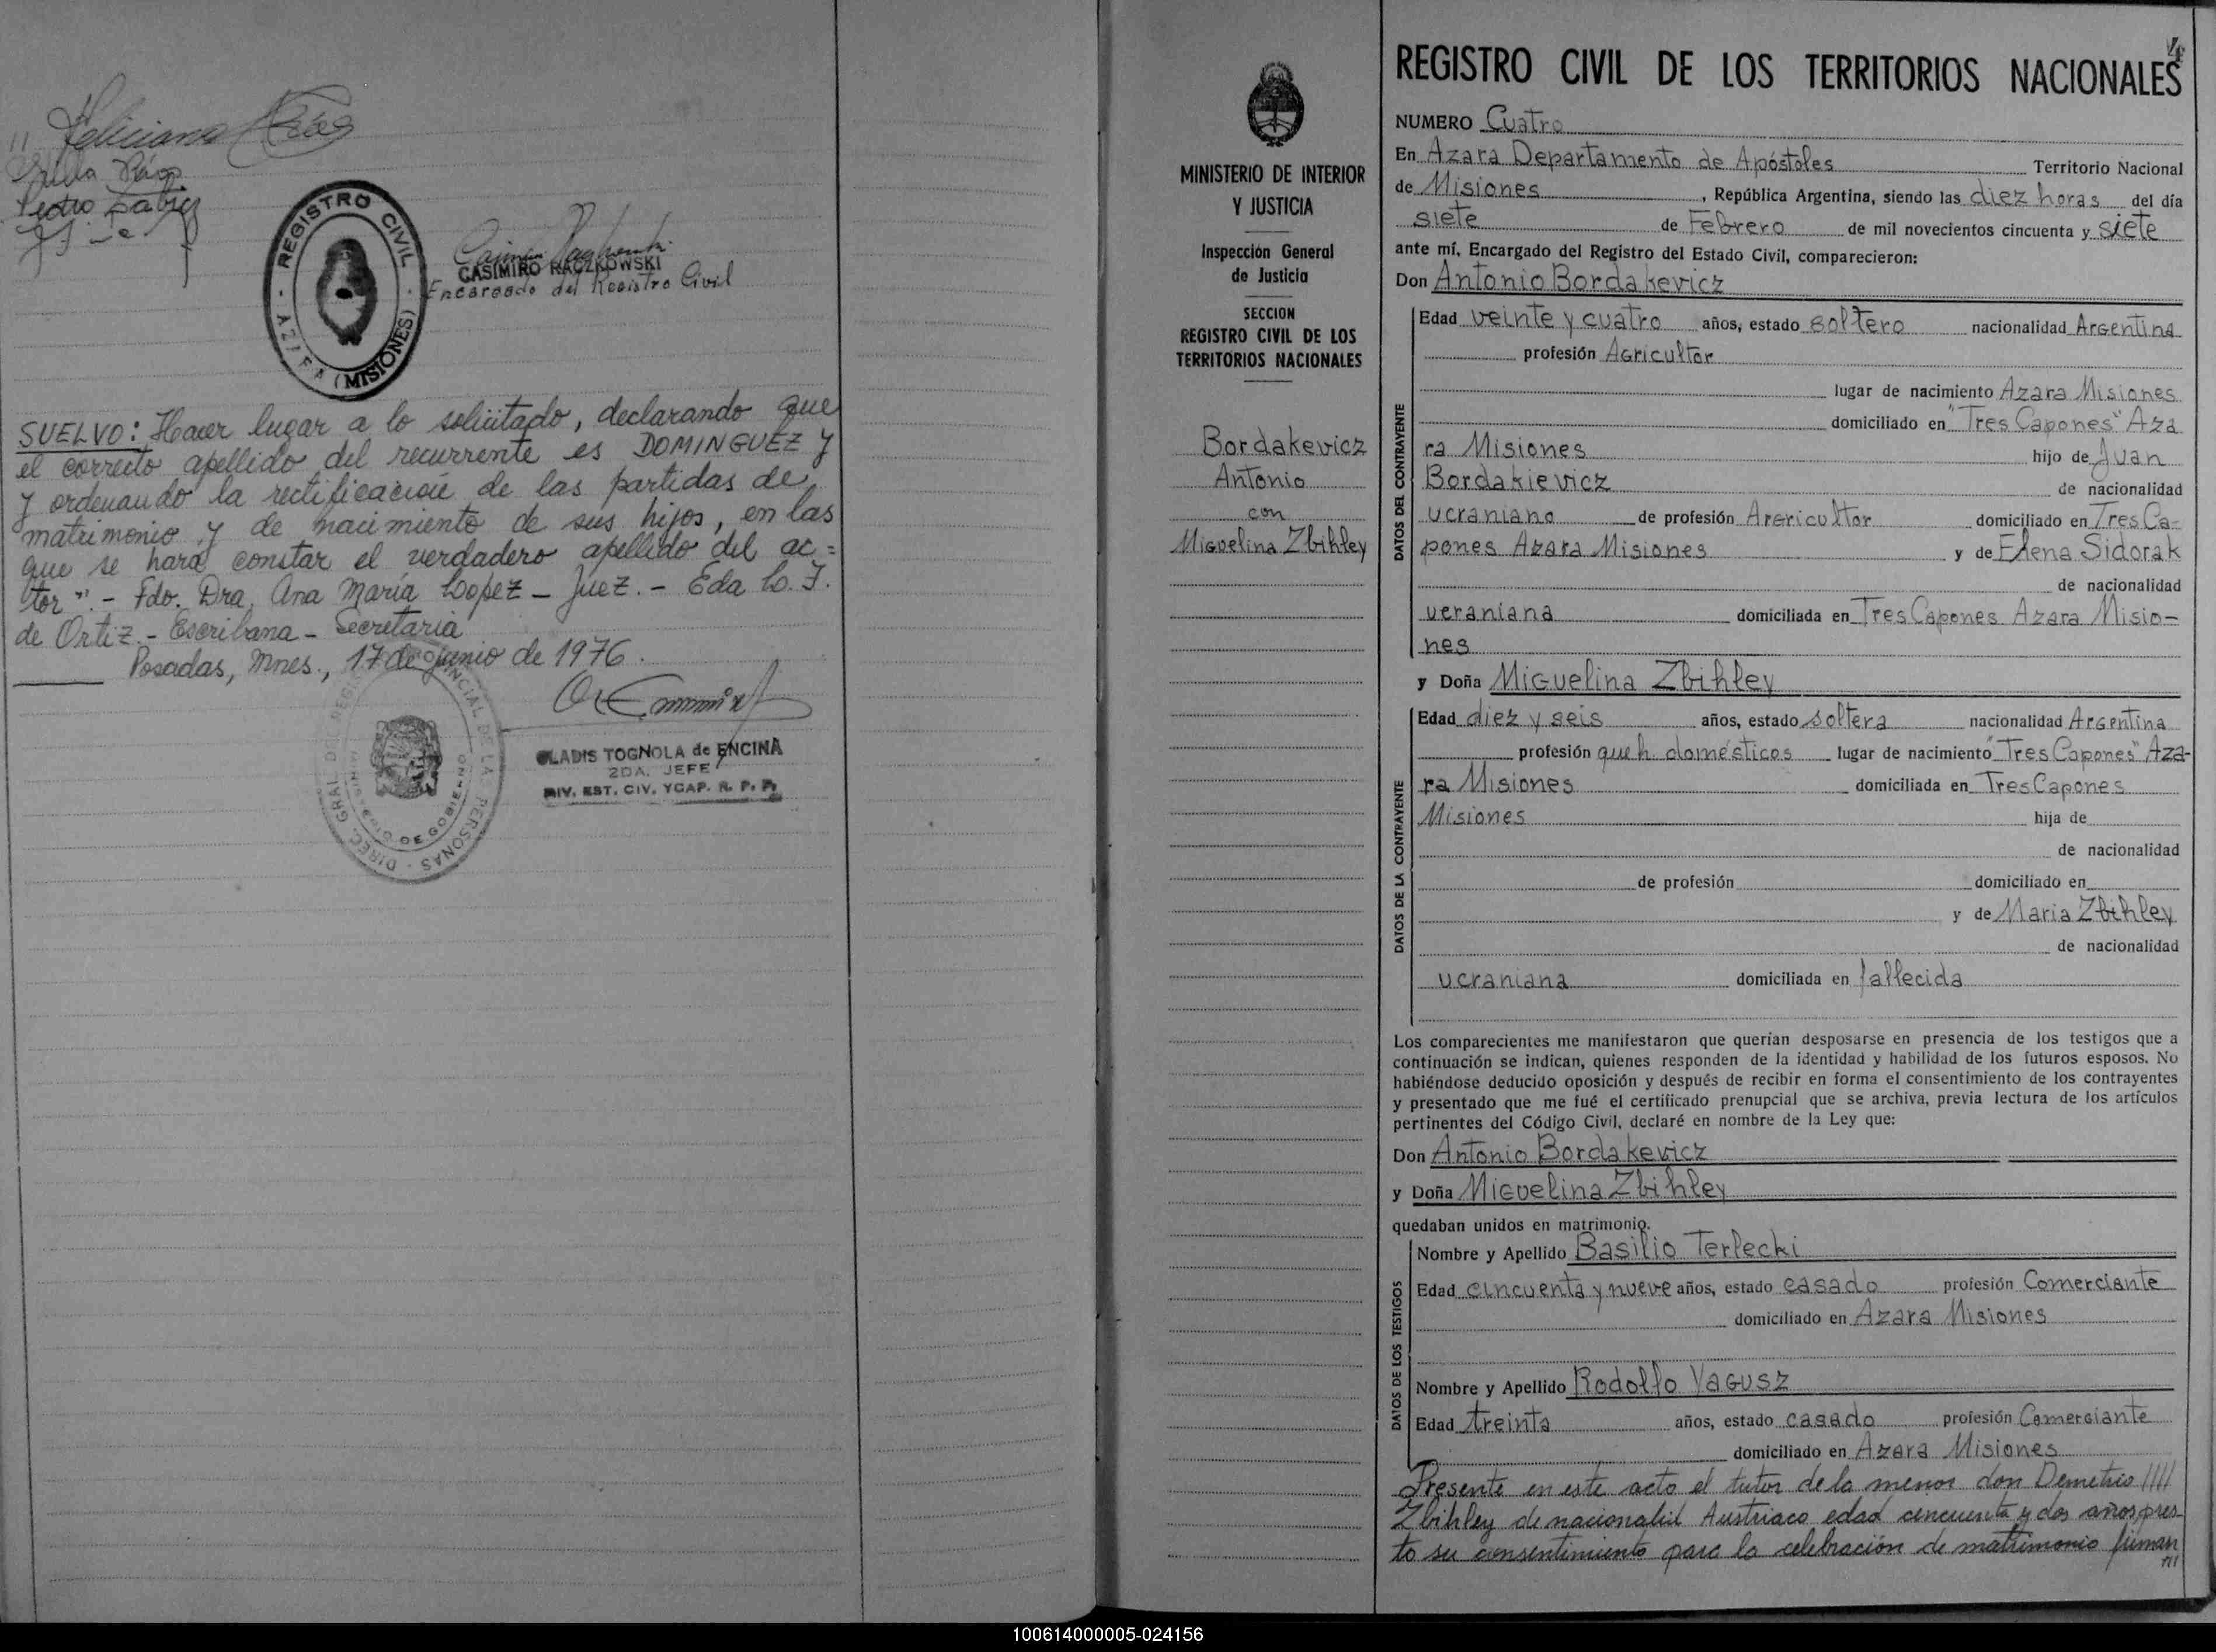 Feliciana Ríos
Pedro
REGISTRO CIVIL
AZARA (MISIONES)
CASIMIRO RACZKOWSKI
Encargado del Registro Civil
SUELVO: Hacer lugar a lo solicitado, declarando que
el correcto apellido del recurrente es DOMINGUEZ y
y ordenando la rectificación de las partidas de
matrimonio y de nacimiento de sus hijos, en las
que se hará constar el verdadero apellido del ac=
tor".- Fdo. Dra. Ana María Lopez - Juez. - Eda L. I.
de Ortiz.- Escribana - Secretaria
Posadas, Mnes., 17 de junio de 1976.
GLADIS TOGNOLA de ENCINA
2DA. JEFE
DIV. EST. CIV. Y CAP. R. P. P.
4
REGISTRO CIVIL DE LOS TERRITORIOS NACIONALES
MINISTERIO DE INTERIOR
Y JUSTICIA
Inspección General
de Justicia
SECCION
REGISTRO CIVIL DE LOS
TERRITORIOS NACIONALES
Bordakevicz
Antonio
con
Miguelina Zbihley
NUMERO Cuatro
En Azara Departamento de Apóstoles Territorio Nacional
de Misiones, República Argentina, siendo las diez horas del día
siete de Febrero de mil novecientos cincuenta y siete
ante mí, Encargado del Registro del Estado Civil, comparecieron:
Don Antonio Bordakevicz
DATOS DEL CONTRAYENTE
Edad veinte y cuatro años, estado soltero nacionalidad Argentina
profesión Agricultor
lugar de nacimiento Azara Misiones
domiciliado en "Tres Capones" Aza
ra Misiones hijo de Juan
Bordakievicz de nacionalidad
ucraniano de profesión Agricultor domiciliado en Tres Ca-
pones Azara Misiones y de Elena Sidorak
de nacionalidad
ucraniana domiciliada en Tres Capones Azara Misio-
nes
y Doña Miguelina Zbihley
DATOS DE LA CONTRAYENTE
Edad diez y seis años, estado soltera nacionalidad Argentina
profesión queh. domésticos lugar de nacimiento "Tres Capones" Aza-
ra Misiones domiciliada en Tres Capones
Misiones hija de
de nacionalidad
de profesión domiciliado en
y de Maria Zbihley
de nacionalidad
ucraniana domiciliada en fallecida
Los comparecientes me manifestaron que querían desposarse en presencia de los testigos que a
continuación se indican, quienes responden de la identidad y habilidad de los futuros esposos. No
habiéndose deducido oposición y después de recibir en forma el consentimiento de los contrayentes
y presentado que me fué el certificado prenupcial que se archiva, previa lectura de los artículos
pertinentes del Código Civil, declaré en nombre de la Ley que:
Don Antonio Bordakevicz
y Doña Miguelina Zbihley
quedaban unidos en matrimonio.
DATOS DE LOS TESTIGOS
Nombre y Apellido Basilio Terlecki
Edad cincuenta y nueve años, estado casado profesión Comerciante
domiciliado en Azara Misiones
Nombre y Apellido Rodolfo Yagusz
Edad treinta años, estado casado profesión Comerciante
domiciliado en Azara Misiones
Presente en este acto el tutor de la menor don Demetrio ////
Zbihley de nacionalid Austriaco edad cincuenta y dos años pres
to su consentimiento para la celebración de matrimonio firman
///
100614000005-024156